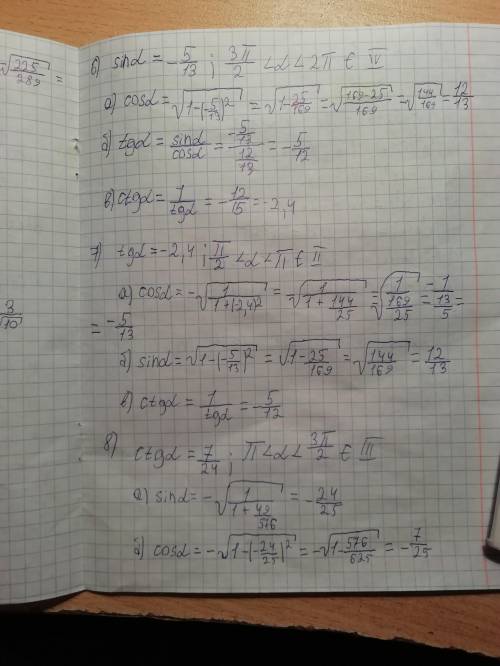 √225/289 =
3/√10
6) sinα = -5/13 ; 3π/2 <α< 2π ∈ IV
a) cosα = √1-(-5/13)² = √1-25/169 = √169-25/169 = √144/169 = 12/13
б) tgα = sinα/cosα = -5/13 / 12/13 = -5/12
в) ctgα = 1/tgα = -12/5 = -2,4
7) tgα = -2,4 ; π/2 <α<π ∈ II
a) cosα = -√1/1+(-2,4)² = √1/1+144/25 = √1/169/25 = -1/13/5 =
= -5/13
б) sinα = √1-(-5/13)² = √1-25/169 = √144/169 = 12/13
в) ctgα = 1/tgα = -5/12
8) ctgα = 7/24 ; π<α< 3π/2 ∈ III
a) sinα = -√1/1+49/576 = -24/25
б) cosα = -√1-(-24/25)² = -√1-576/625 = -7/25